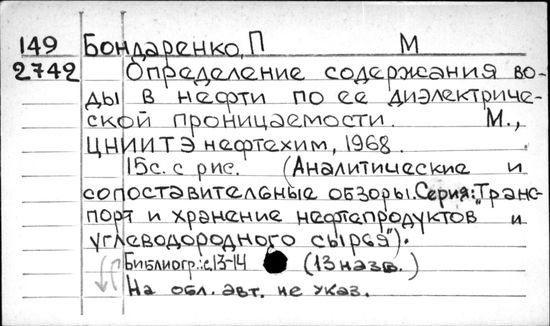 149 Бондаренко, П М
2742 Определение содержания во-
ды в нефти по ее диэлектриче-
ской проницаемости. М.,
ЦНИИТЭнефтехим, 1968.
15с. с рис. (Аналитические и
сопоставительные обзоры. Серия: "Транс-
порт и хранение нефтепродуктов и
углеводородного сырья").
Библиогр.: с.13-14 (13 назв.)
На обл. авт. не указ.